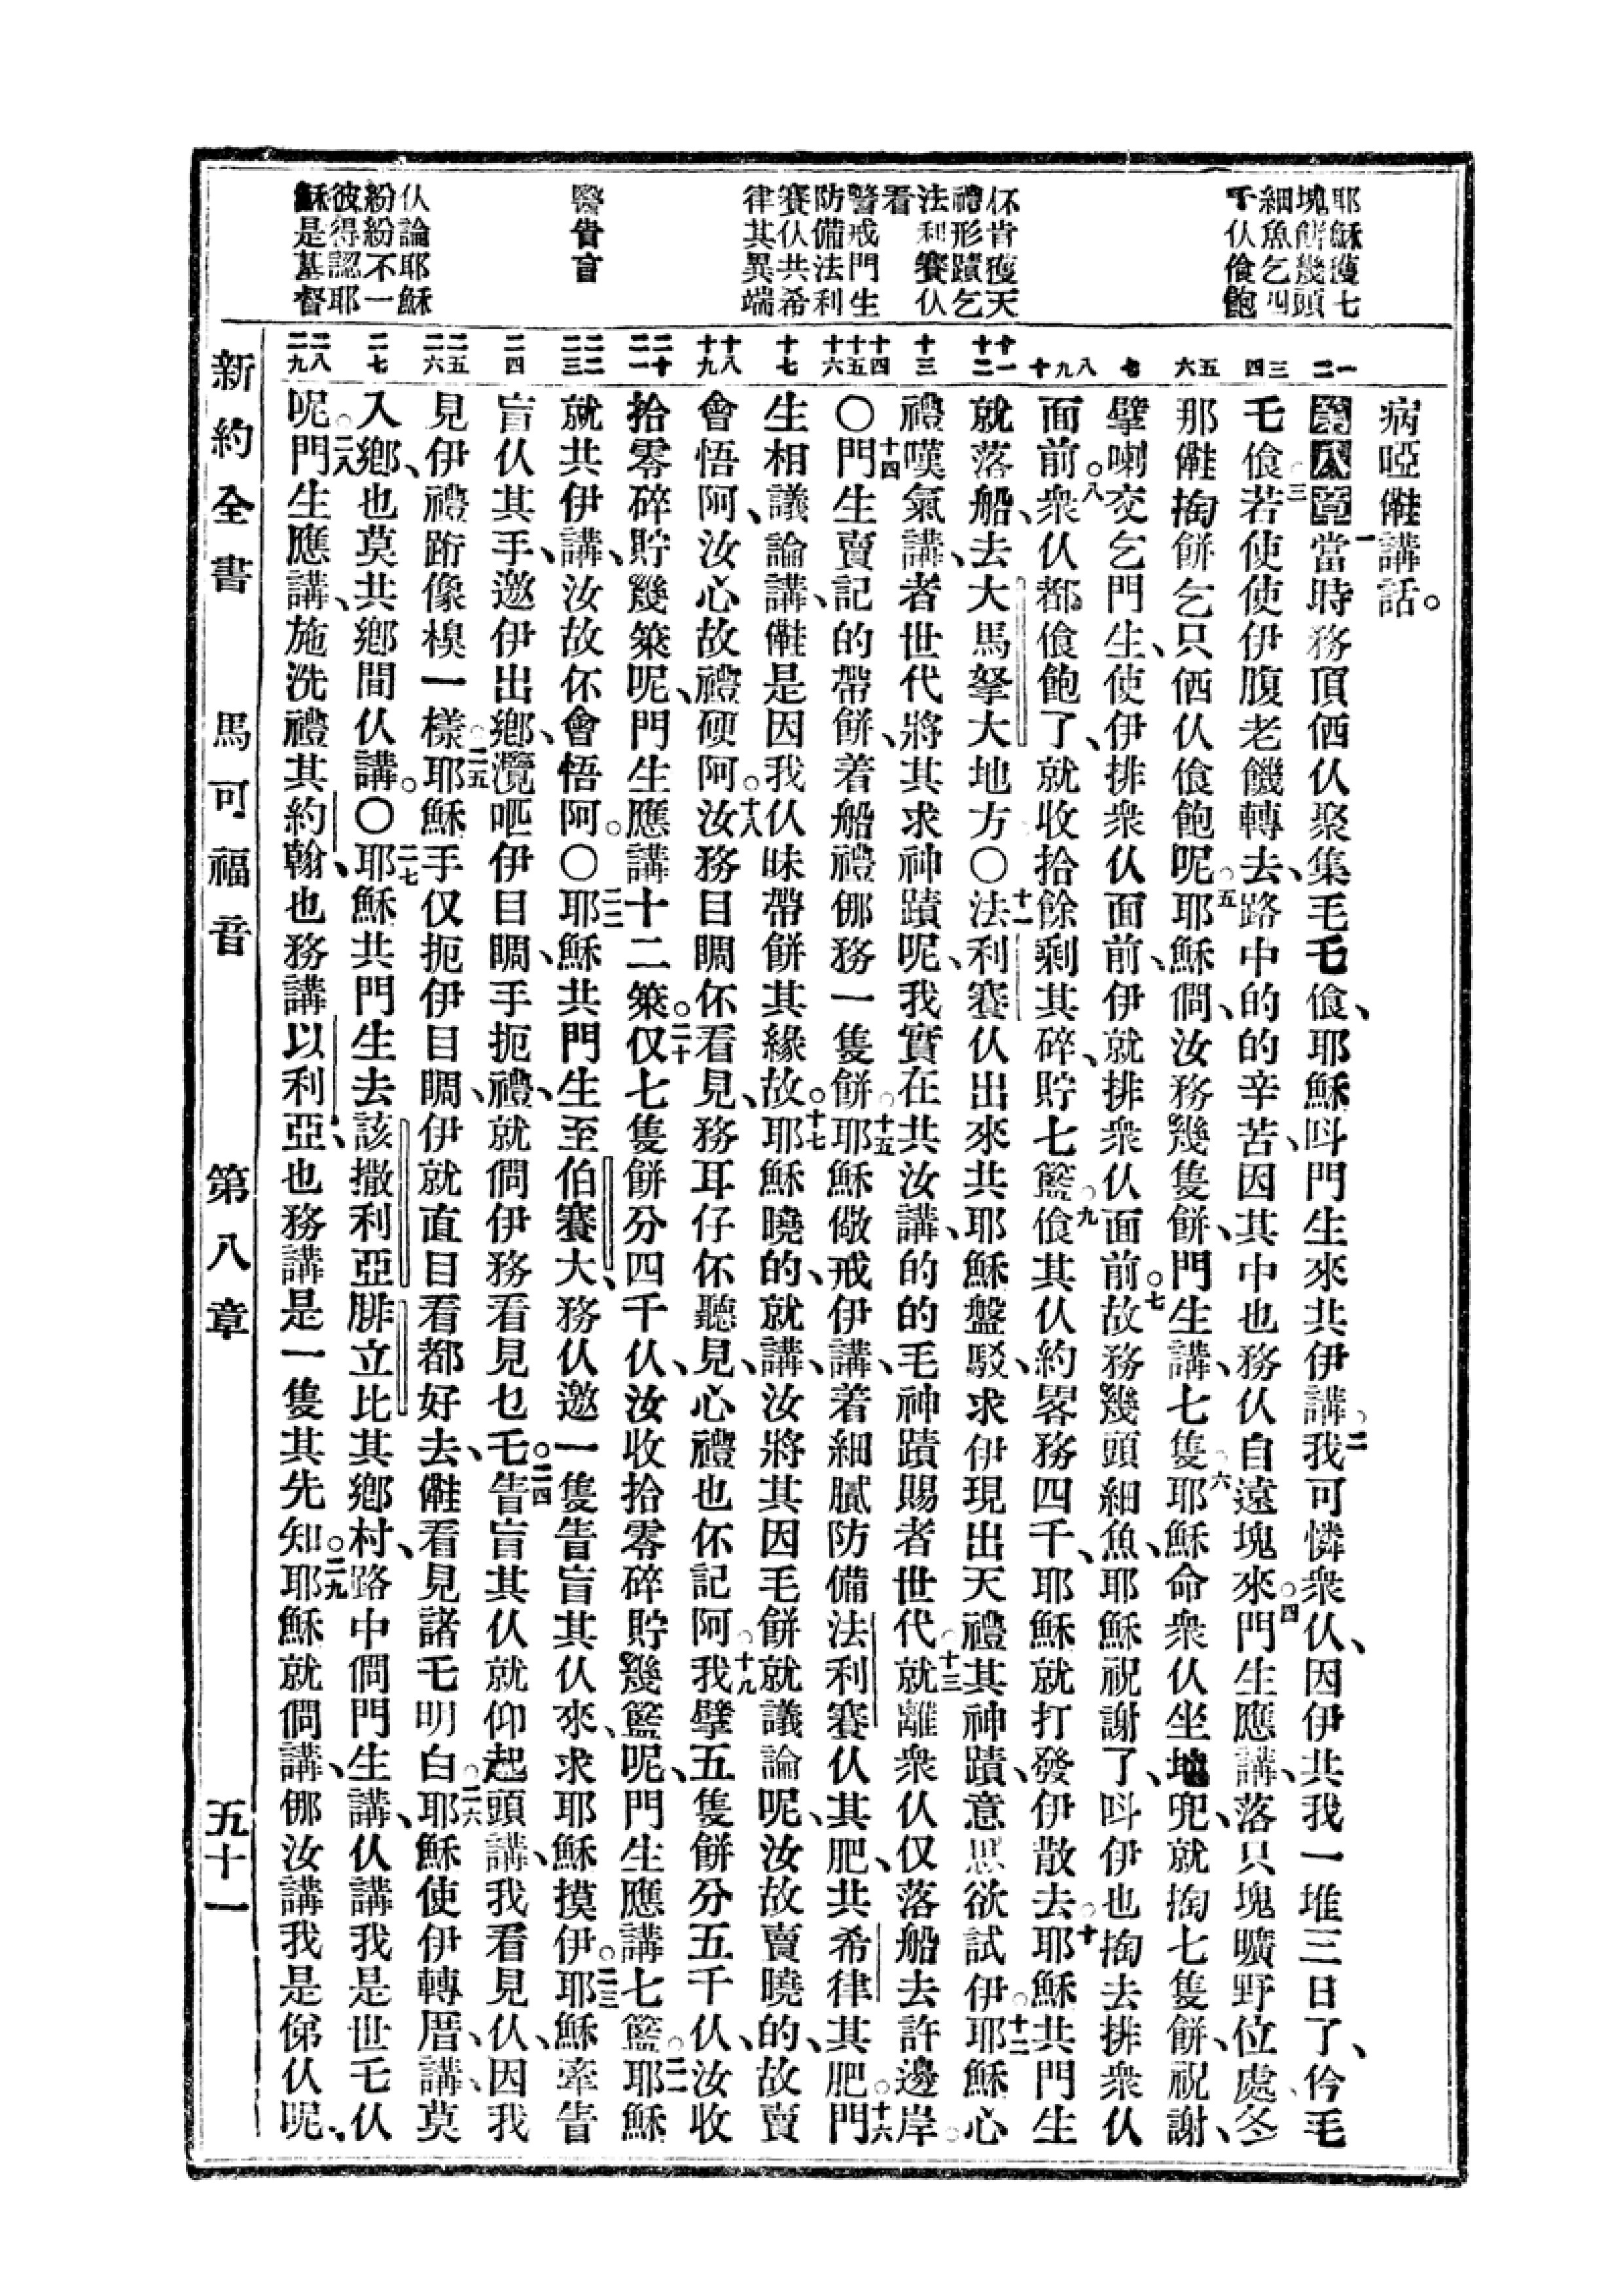 耶穌獲七
塊餅幾頭
細魚乞四
千仈飡飽
伓肯獲天
禮形蹟乞
法利賽仈
看
警戒門生
防備法利
賽仈共希
律其異端
醫眚盲
仈論耶穌
紛紛不一
彼得認耶
穌是基督
一二
三四
五六
七
八九十
十一十二
十三
十四十五十六
十七
十八十九
二十二一
二二二三
二四
二五二六
二七
二八二九
病啞㑲講話。
第八章一當時務頂㑚仈聚集毛乇飡、耶穌呌門生來共伊講、二我可憐衆仈、因伊共我一堆三日了、仱毛
乇飡三若使使伊腹老饑轉去、路中的的辛苦、因其中也務仈自遠塊來。四門生應講、落只塊曠野位處、仒
那㑲掏餅乞只㑚仈飡飽呢五耶穌問、汝務幾隻餅、門生講、七隻六耶穌命衆仈坐地兜、就掏七隻餅、祝謝、
擘喇交乞門生、使伊排衆仈面前、伊就排衆仈面前。七故務幾頭細魚、耶穌祝謝了、呌伊也掏去排衆仈
面前。八衆仈都飡飽了、就收拾餘剩其碎、貯七籃九飡其仈約畧務四千、耶穌就打發伊散去十耶穌共門生
就落船、去大馬拏大地方〇十一法利賽仈出來共耶穌盤駁、求伊現出天禮其神蹟、意思欲試伊。十二耶穌心
禮嘆氣講、者世代將其求神蹟呢、我實在共汝講、的的毛神蹟賜者世代十三就離衆仈仅落船去許邊岸。
〇十四門生賣記的帶餅、着船禮㑚務一隻餅十五耶穌儆戒伊講、着細膩防備法利賽仈其肥、共希律其肥。十六門
生相議論講、㑲是因我仈昧帶餅其緣故。十七耶穌曉的、就講、汝將其因毛餅就議論呢、汝故賣曉的、故賣
會悟阿、汝心故禮硬阿。十八汝務目睭伓看見、務耳仔伓聽見、心禮也伓記阿十九我擘五隻餅分五千仈、汝收
拾零碎貯幾䉤呢、門生應講十二䉤。二十仅七隻餅分四千仈、汝收拾零碎貯幾籃呢、門生應講七籃。二一耶穌
就共伊講、汝故伓會悟阿。〇二二耶穌共門生至伯賽大、務仈邀一隻眚盲其仈來、求耶穌摸伊。二三耶穌牽眚
盲仈其手、邀伊出鄉、瀾呸伊目睭、手扼禮、就問伊務看見乜乇。二四眚盲其仈就仰起頭講、我看見仈、因我
見伊禮跡像模一樣二五耶穌手仅扼伊目睭、伊就直目看都好去、㑲看見諸乇明白二六耶穌使伊轉厝、講、莫
入鄉、也莫共鄉間仈講。〇二七耶穌共門生去該撒利亞腓立比其鄉村、路中問門生講、仈講我是世乇仈
呢二八門生應講、施洗禮其約翰、也務講以利亞、也務講是一隻其先知。二九耶穌就問講、㑚汝講我是俤仈呢、
新約全書　馬可福音　第八章　五十一